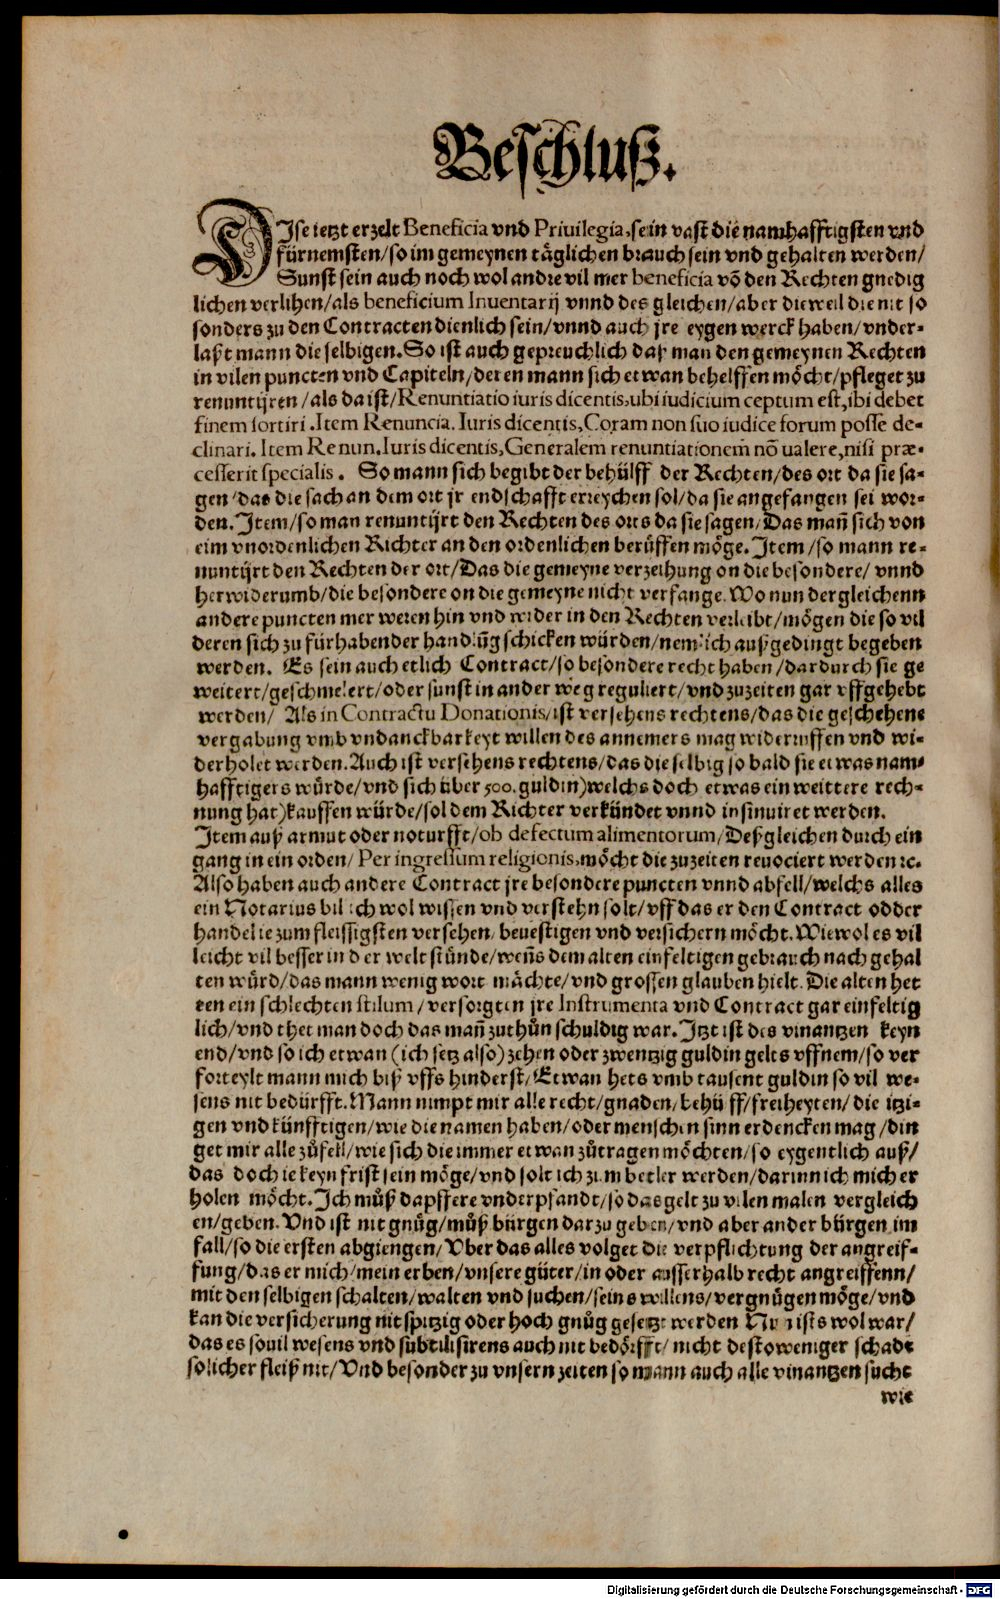 Beschluß.
DIse ietzt erzelt Beneficia vnd Priuilegia, sein vast die namhafftigsten vnd
fürnemsten/so im gemeynen täglichen brauch sein vnd gehalten werden/
Sunst sein auch noch wol andre vil mer beneficia võ den Rechten gnedig
lichen verlihen/als beneficium Inuentarij vnnd des gleichen/aber dieweil die nit so
sonders zu den Contracten dienlich sein/vnnd auch jre eygen werck haben/vnder-
laßt mann die selbigen. So ist auch gepreuchlich daß man den gemeynen Rechten
in vilen puncten vnd Capiteln/deren mann sich etwan behelffen möcht/pfleget zu
renuntijren/als da ist/Renuntiatio iuris dicentis, ubi iudicium ceptum est, ibi debet
finem sortiri. Item Renuncia. Iuris dicentis, Coram non suo iudice forum posse de-
clinari. Item Renun. Iuris dicentis, Generalem renuntiationem nõ ualere, nisi præ-
cesserit specialis. So mann sich begibt der behülff der Rechten/des ort da sie sa-
gen/das die sach an dem ort jr endschafft erreychen sol/da sie angefangen sei wor-
den. Item/so man renuntijrt den Rechten des orts da sie sagen/Das mañ sich von
eim vnordenlichen Richter an den ordenlichen berüffen möge. Item/so mann re-
nuntijrt den Rechten der ort/Das die gemeyne verzeihung on die besondere/vnnd
herwiderumb/die besondere on die gemeyne nicht verfange. Wo nun dergleichenn
andere puncten mer weren hin vnd wider in den Rechten verleibt/mögen die so vil
deren sich zu fürhabender handlũg schicken würden/nemlich außgedingt begeben
werden. Es sein auch etlich Contract/so besondere recht haben/dardurch sie ge
weitert/geschmelert/oder sunst in ander weg reguliert/vnd zuzeiten gar vffgehebt
werden/ Als in Contractu Donationis/ist versehens rechtens/das die geschehene
vergabung vmb vndanckbarkeyt willen des annemers mag widerruffen vnd wi-
derholet werden. Auch ist versehens rechtens/das die selbig so bald sie etwas nam-
hafftigers würde/vnd sich über 500. guldin)welchs doch etwas ein weittere rech-
nung hat)kauffen würde/sol dem Richter verkündet vnnd insinuiret werden.
Item auß armut oder noturfft/ob defectum alimentorum/Deßgleichen durch ein
gang in ein orden/Per ingressum religionis, möcht die zuzeiten reuociert werden ꝛc.
Also haben auch andere Contract jre besondere puncten vnnd abfell/welchs alles
ein Notarius billich wol wissen vnd verstehn solt/vff das er den Contract odder
handel ie zum fleissigsten versehen/beuestigen vnd versichern möcht. Wiewol es vil
leicht vil besser in der welt stünde/weñs dem alten einfeltigen gebrauch nach gehal
ten würd/das mann wenig wort mächte/vnd grossen glauben hielt. Die alten het
ten ein schlechten stilum/versorgten jre Instrumenta vnd Contract gar einfeltig
lich/vnd thet man doch das mañ zuthůn schuldig war. Jtzt ist des vinantzen keyn
end/vnd so ich etwan (ich setz also) zehen oder zwentzig guldin gelts vffnem/so ver
forteylt mann mich biß vffs hinderst/Etwan hets vmb tausent guldin so vil we-
sens nit bedürfft. Mann nimpt mir alle recht/gnaden/behülff/freiheyten/die itzi-
gen vnd künfftigen/wie die namen haben/oder menschen sinn erdencken mag/din
get mir alle zůfell/wie sich die immer etwan zůtragen möchten/so eygentlich auß/
das doch ie keyn frist sein möge/vnd solt ich zum betler werden/darinn ich mich er
holen möcht. Ich můß dapffere vnderpfandt/so das gelt zu vilen malen vergleich
en/geben. Vnd ist nit gnůg/můß bürgen darzu geben/vnd aber ander bürgen im
fall/so die ersten abgiengen/Vber das alles volget die verpflichtung der angreif-
fung/das er mich/mein erben/vnsere güter/in oder ausserhalb recht angreiffenn/
mit den selbigen schalten/walten vnd suchen/seins willens/vergnügen möge/vnd
kan die versicherung nit spitzig oder hoch gnůg gesetzt werden Nun ists wol war/
das es souil wesens vnd subtilisirens auch nit bedörfft/nicht destoweniger schadt
solicher fleiß nit/Vnd besonder zu vnsern zeiten so mann auch alle vinantzen sucht
wie
Digitalisierung gefördert durch die Deutsche Forschungsgemeinschaft - DFG